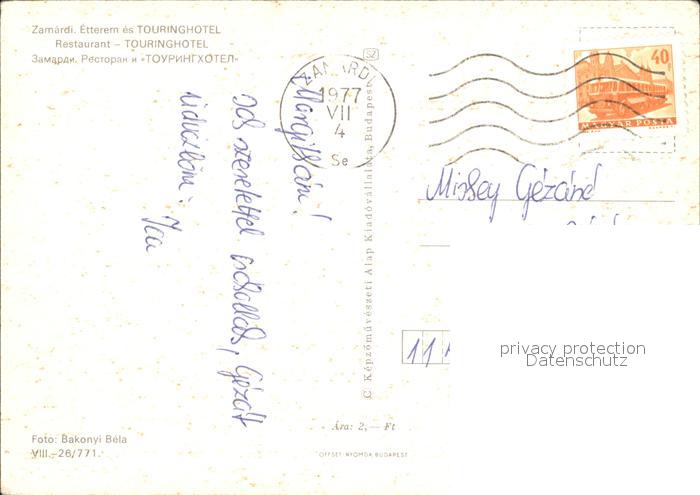 Zamárdi. Étterem és TOURINGHOTEL
Restaurant – TOURINGHOTEL
Замарди. Ресторан и «ТОУРИНГХОТЕЛ»
Margitkám!
Sok szeretettel
Gézát
Ica
Foto: Bakonyi Béla
VIII.–26/771.
SZ
C Képzőművészeti Alap Kiadóvállalata, Budapest
ZAMÁRDI
1977
VII
4
Se
40
MAGYAR POSTA
Gézáné
11
Ára: 2,— Ft
OFFSET-NYOMDA BUDAPEST
privacy protection
Datenschutz